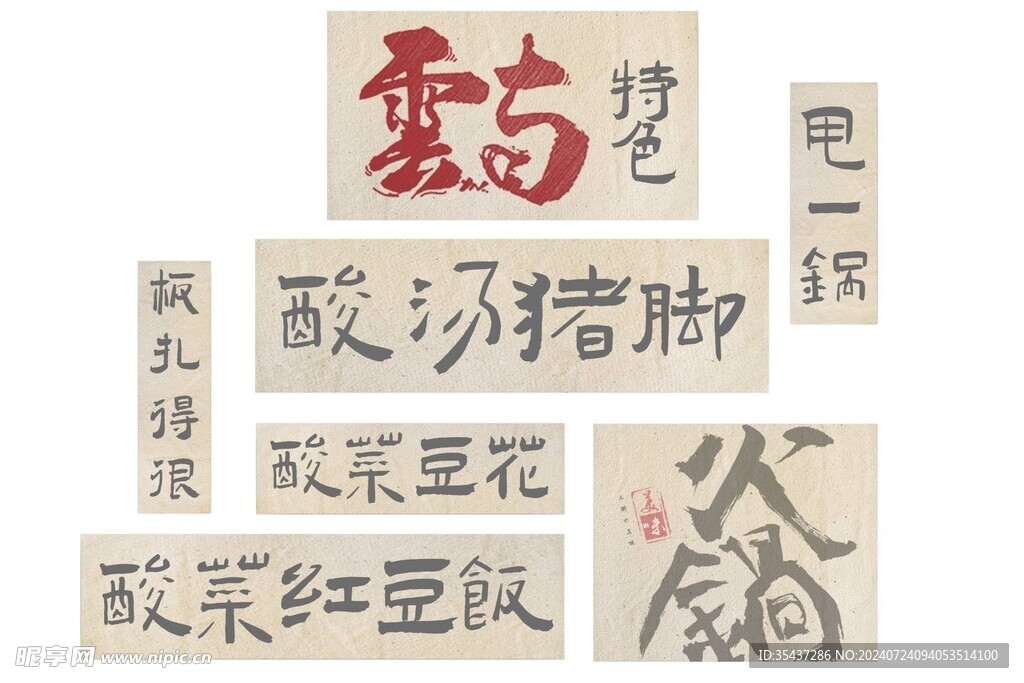 雲南
特色
甩一锅
酸汤猪脚
板扎得很
酸菜豆花
火锅
美味
酸菜红豆飯
昵享网 www.nipic.cn
ID:35437286 NO:20240724094053514100